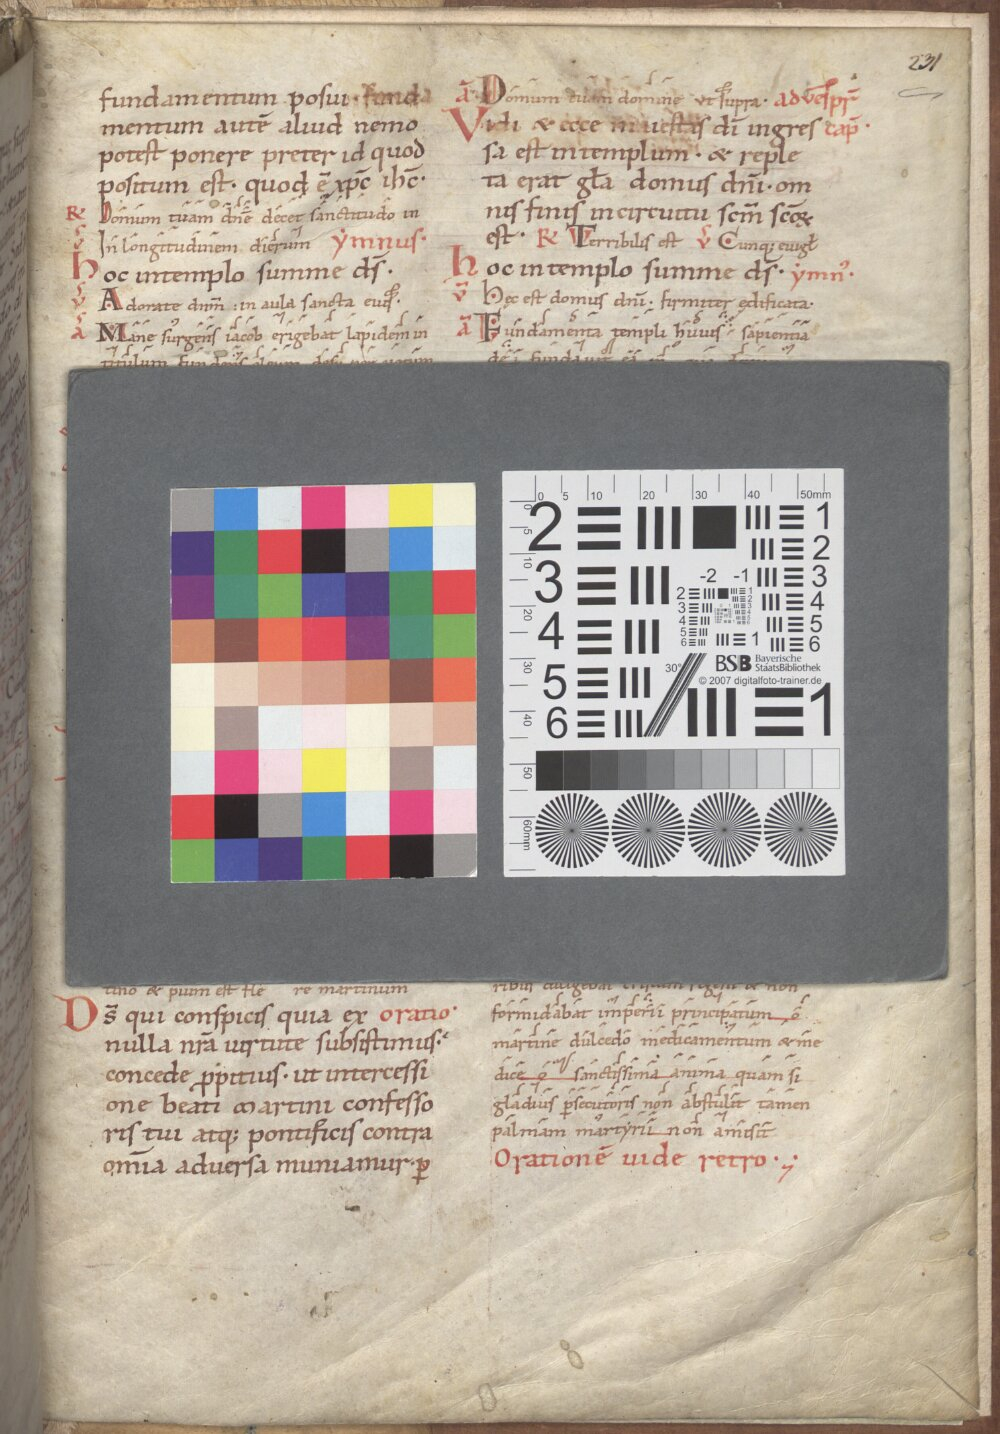 231
fundamentum posui· fund
mentum autē aliud nemo
potest ponere preter id quod
positum est· quod ē xp̄c ih̄c·
R Domum tuam dn̄e decet sanctitudo in
v̄ In longitudinem dierum ymnus·
hoc in templo summe ds̄·
v̄ Adorate dnm̄ in aula sancta
ā Mane surgens iacob erigebat lapidem in
titulum
tino & pium est
re martinum
Ds̄ qui conspicis quia ex oratio·
nulla nr̄a uirtute subsistimus·
concede ꝓpitius· ut intercessi
one beati martini confesso
ris tui atq; pontificis contra
om̄ia aduersa muniamur· ꝑ
ā Domum tuam domine ut supra· ad uesp̄r
Vidi & ecce maiestas dī ingres cap̄·
sa est in templum· & reple
ta erat gl̄a domus dn̄i· om
nis finis in circuitu scm̄ scoꝝ
est· R Terribilis est v̄
hoc in templo summe ds̄· ymn̄·
v̄ Hec est domus dn̄i· firmiter edificata·
ā Fundamenta templi huius sapientia
formidabat imperii principatum ō
martine dulcedo medicamentum & me
dice ō sanctissima anima quam si
gladius ꝑsecutoris non abstulit tamen
palmam martyrii non amisit
Orationē uide retro·
0 5 10 20 30 40 50mm
0 5 10 20 30 40 50 60mm
2 3 4 5 6
1 2 3 4 5 6
-2 -1
2 3 4 5 6
1
30°
BSB Bayerische
StaatsBibliothek
© 2007 digitalfoto-trainer.de
1